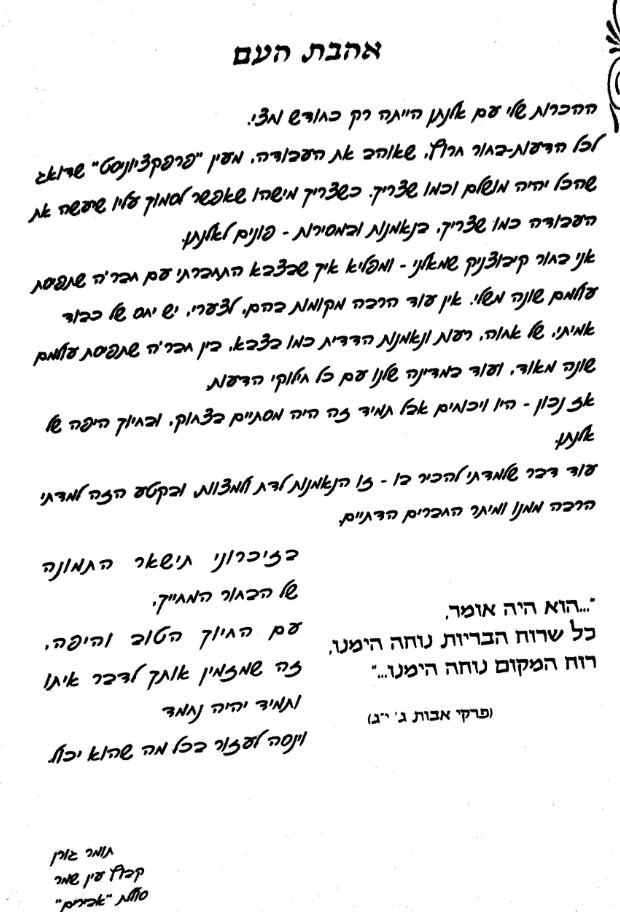 אהבת העם
ההכרות שלי עם אלנתן הייתה רק כחודש וחצי.
לכל הדעות-בחור חרוץ, שאוהב את העבודה, מעין "פרפקציוניסט" שדואג
שהכל יהיה מושלם וכמו שצריך. כשצריך מישהו שאפשר לסמוך עליו שיעשה את
העבודה כמו שצריך, בנאמנות ובמסירות - פונים לאלנתן.
אני בחור קיבוצניק שמאלני - ומפליא איך שבצבא התחברתי עם חבר'ה שתפיסת
עולמם שונה משלי. אין עוד הרבה מקומות בהם, לצערי, יש יחס של כבוד
אמיתי, של אחוה, רעות ונאמנות הדדית כמו בצבא, בין חבר'ה שתפיסת עולמם
שונה מאוד, ועוד במדינה שלנו עם כל חילוקי הדעות.
אז נכון - היו ויכוחים אבל תמיד זה היה מסתיים בצחוק, ובחיוך היפה של
אלנתן.
עוד דבר שלמדתי להכיר בו - זו הנאמנות לדת ולמצוות, ובקטע הזה למדתי
הרבה ממנו ומיתר החברים הדתיים.
בזיכרוני תישאר התמונה
של הבחור המחייך,
עם החיוך הטוב והיפה,
זה שמזמין אותך לדבר איתו
ותמיד יהיה נחמד
וינסה לעזור בכל מה שהוא יכול.
"...הוא היה אומר,
כל שרוח הבריות נוחה הימנו,
רוח המקום נוחה הימנו..."
(פרקי אבות ג' י"ג)
תומר גורן
קבוץ עין שמר
סוללת "אבירים"